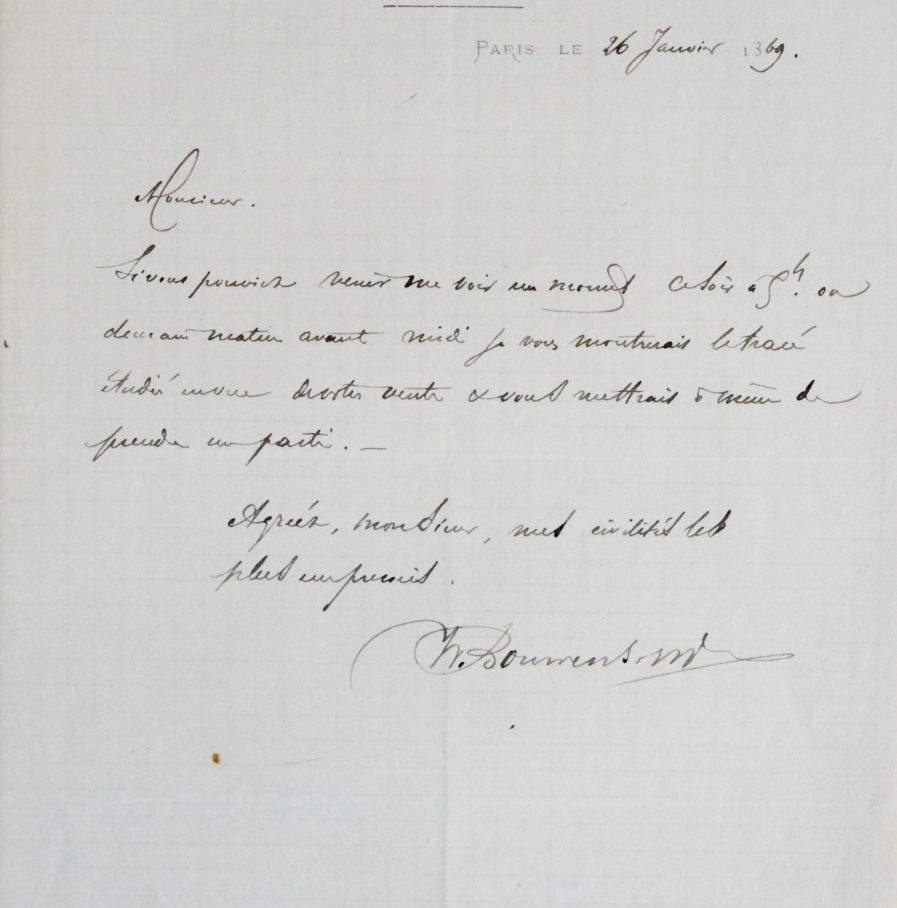 PARIS LE 26 Janvier 1869.
Monsieur.
Si vous pouviez venir me voir un moment ce soir à 5h. ou
demain matin avant midi je vous montrerais le tracé
étudié en vue de votre vente & vous mettrais à même de
prendre un parti. _
Agréez, monsieur, mes civilités les
plus empressées.